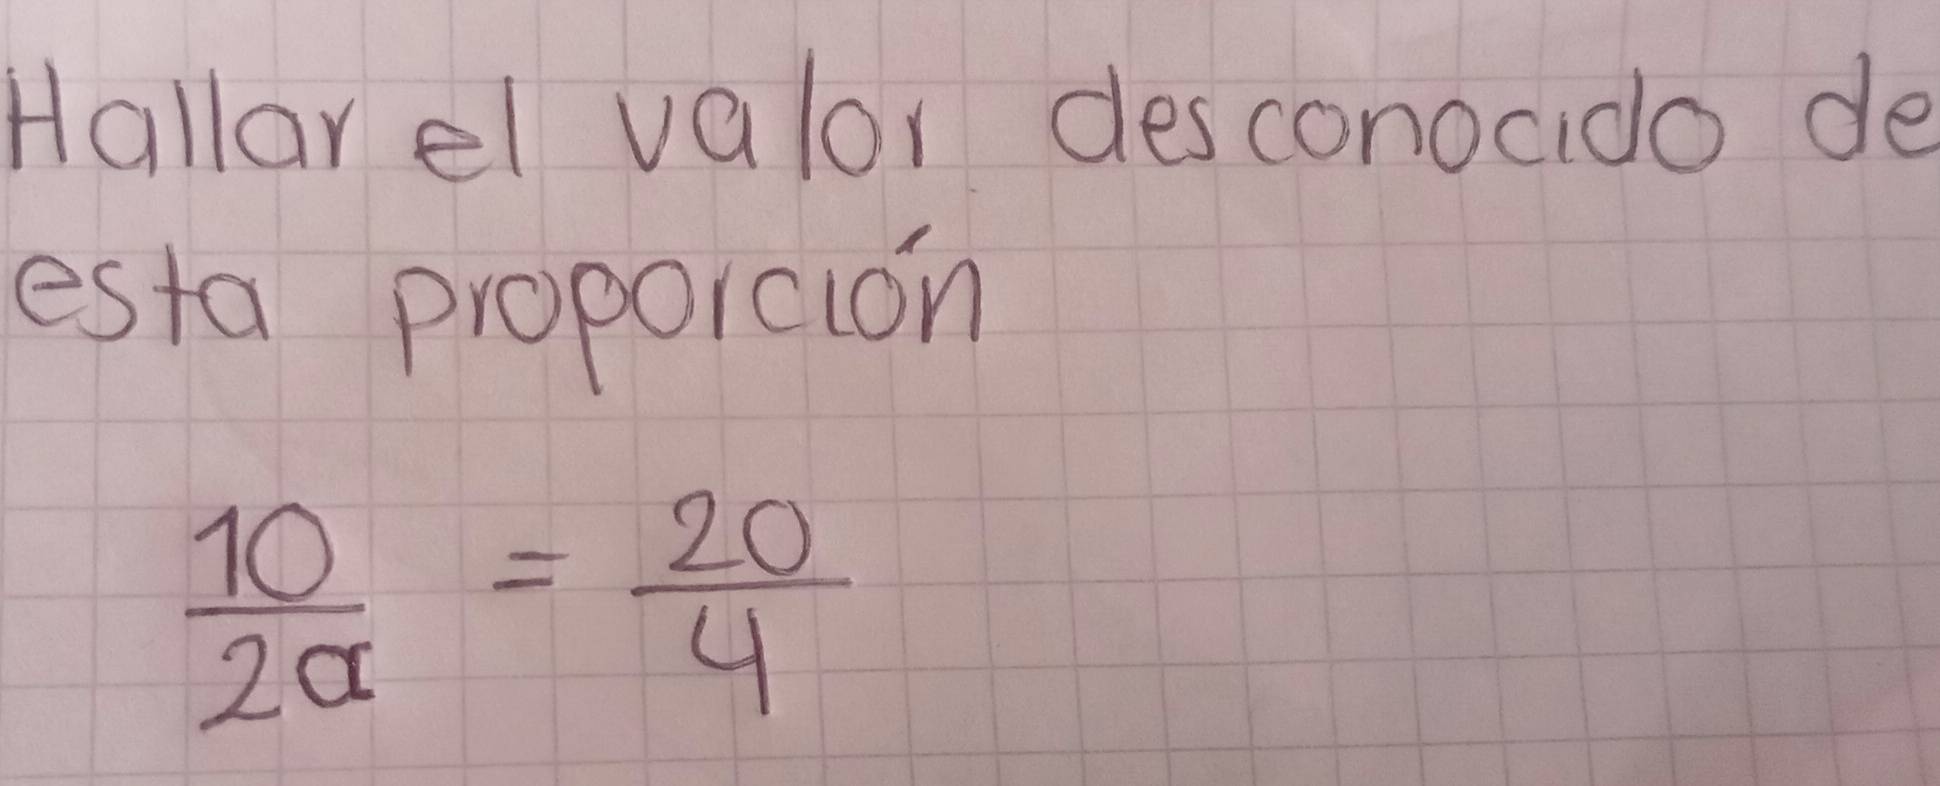 Hallar el valor desconocido de
esta proporción
10/2a = 20/4